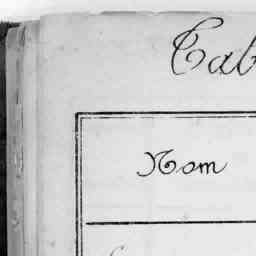 Tab
Nom